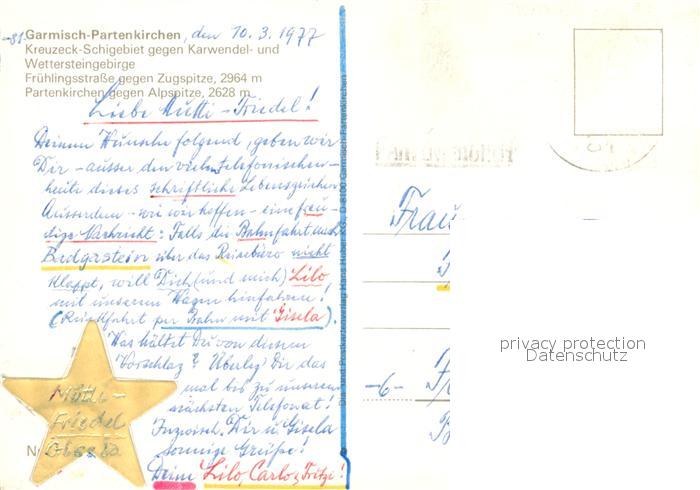 -81- Garmisch-Partenkirchen, den 10.3.1977
Kreuzeck-Schigebiet gegen Karwendel- und
Wettersteingebirge
Frühlingsstraße gegen Zugspitze, 2964 m
Partenkirchen gegen Alpspitze, 2628 m
Liebe Mutti-Friedel!
Deinem Wunsche folgend, geben wir
Dir - ausser den vielen telefonischen -
heute dieses schriftliche Lebenszeichen
Ausserdem - wie wir hoffen - eine freu-
dige Nachricht: Falls die Bahnfahrt nach
Badgastein über das Reisebüro nicht
klappt, will Dich (und mich) Lilo
mit unserem Wagen hinfahren!
(Rückfahrt per Bahn mit Gisela).
Was hältst Du von diesem
Vorschlag? Überleg' Dir das
mal bis zu unserem
nächsten Telefonat!
Inzwisch. Dir u. Gisela
sonnige Grüße!
Deine Lilo, Carlo, Fritzi!
Mutti-
Friedel
Gisela
Dia- und Postkartenverlag Hans Huber KG, D-8100 Garmisch-Partenkirchen
Frau
-6-
privacy protection
Datenschutz